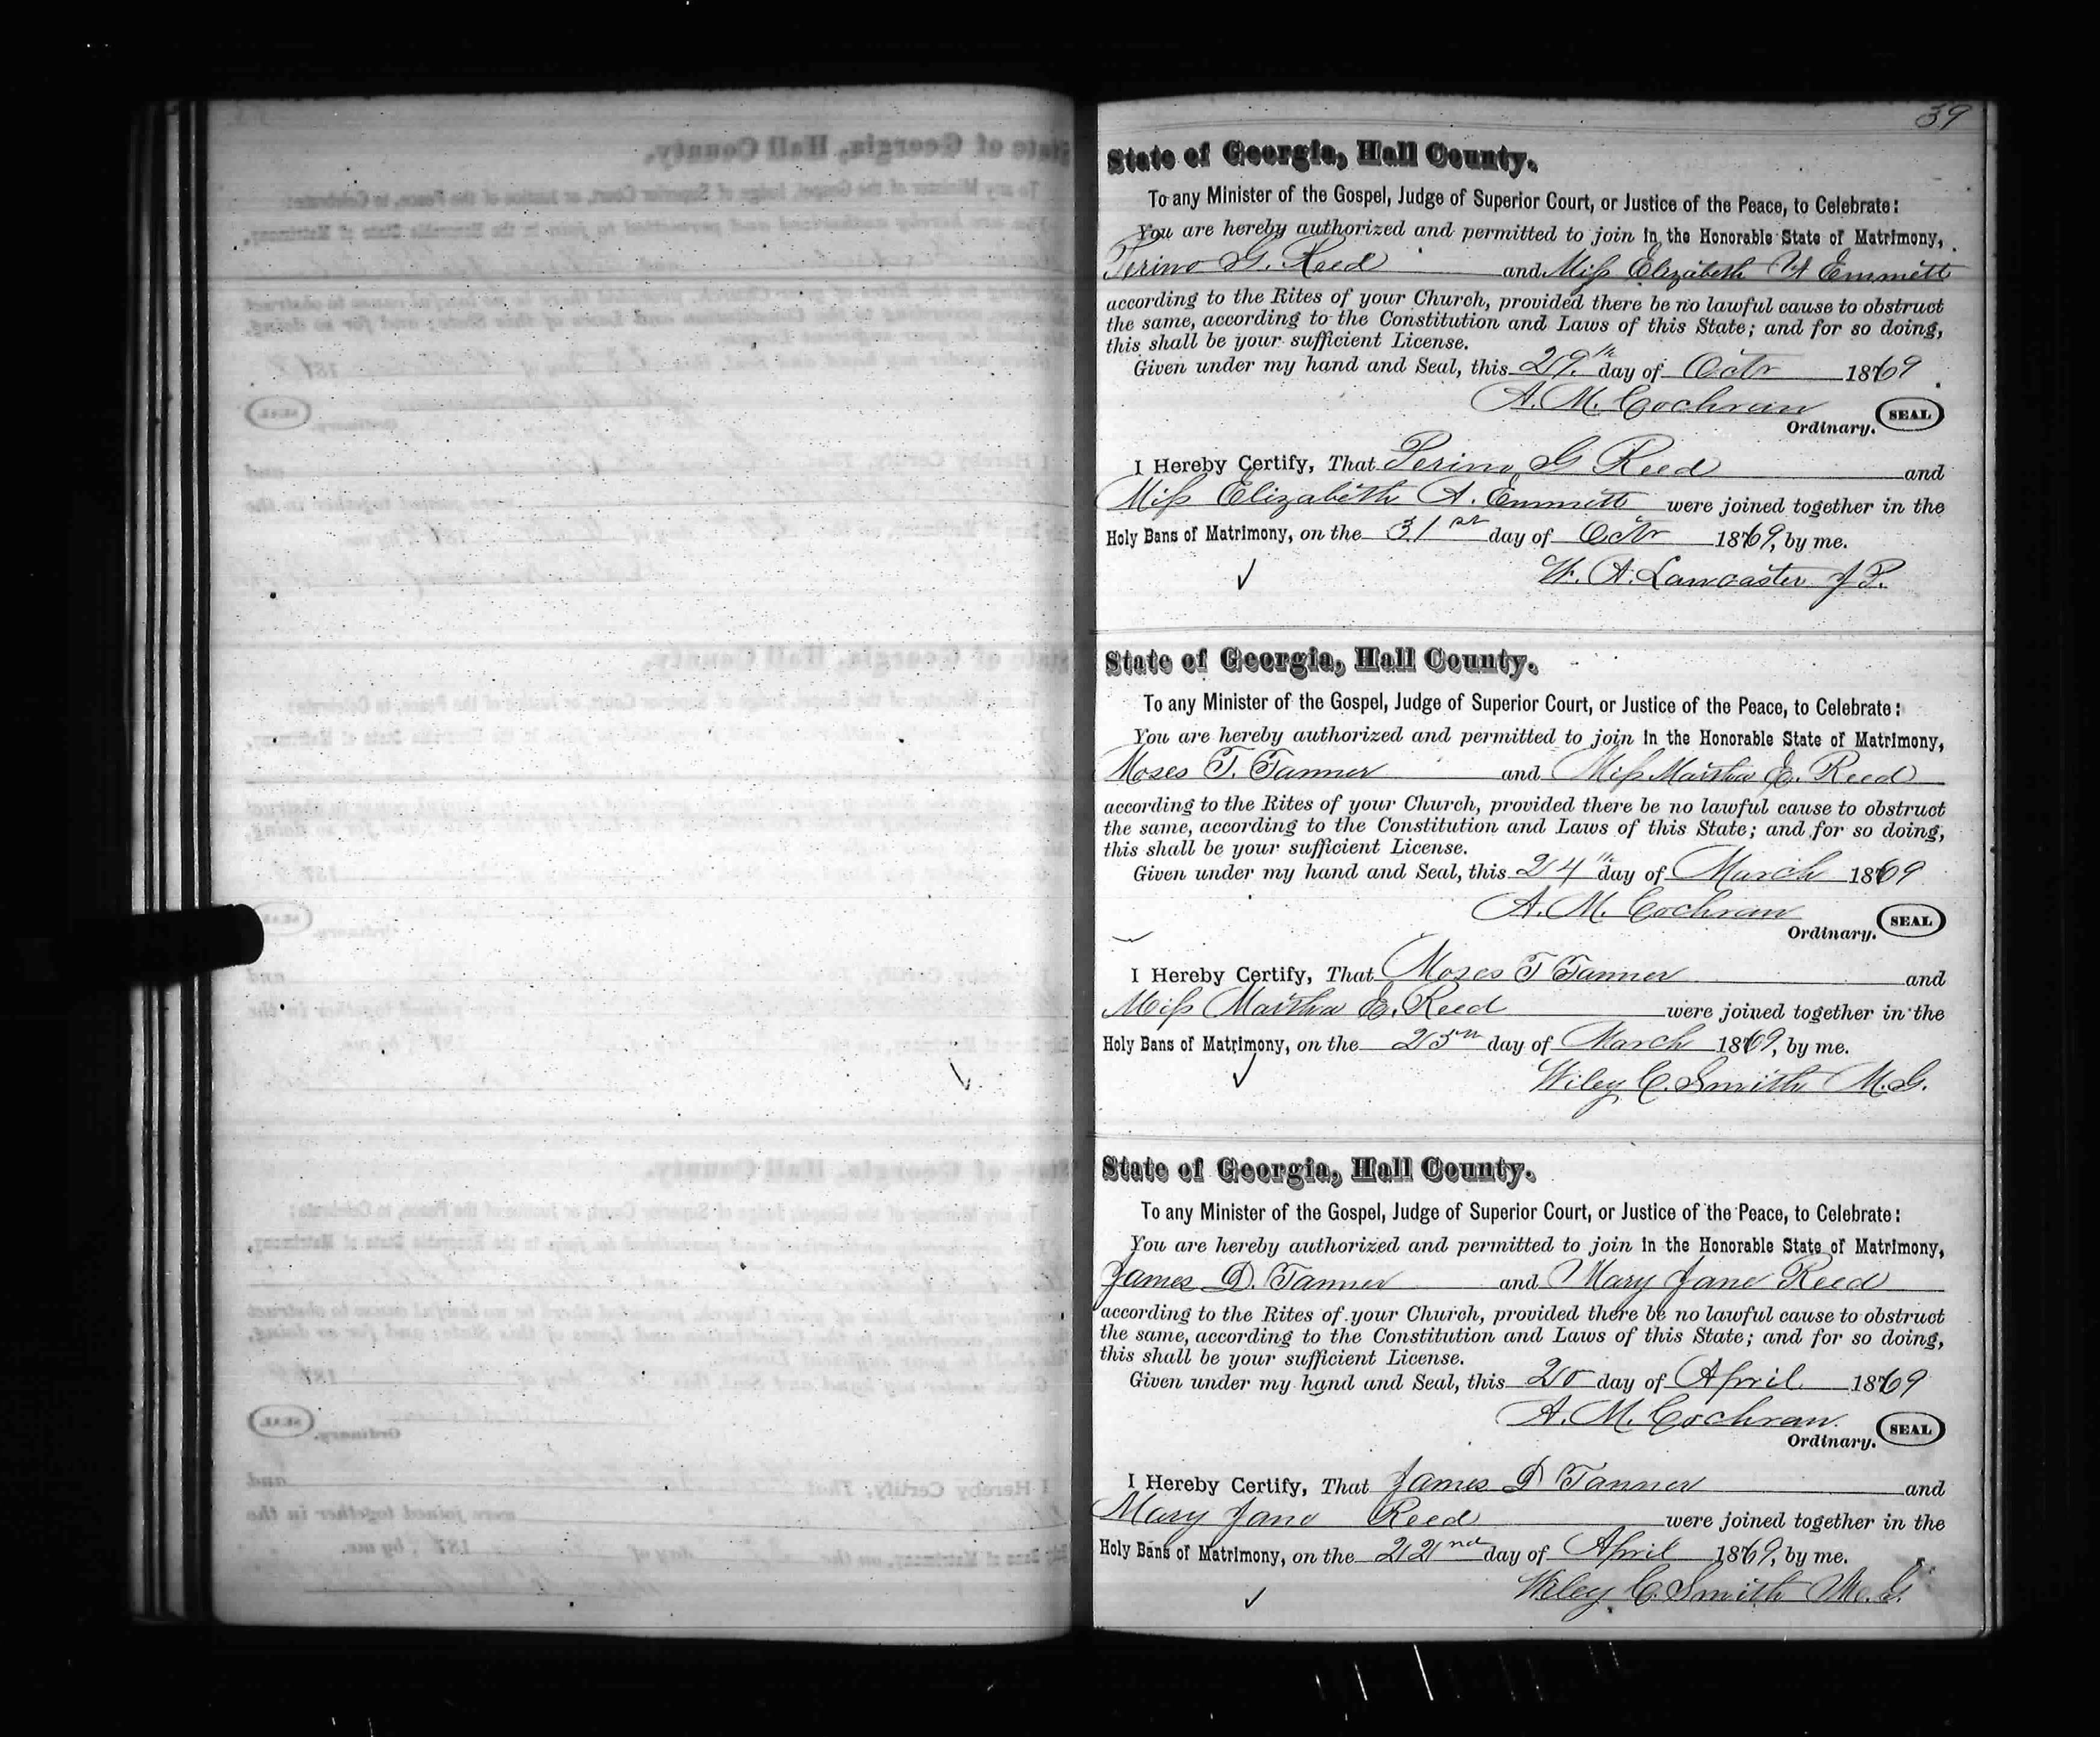 39
State of Georgia, Hall County.
To any Minister of the Gospel, Judge of Superior Court, or Justice of the Peace, to Celebrate:
You are hereby authorized and permitted to join in the Honorable State of Matrimony,
Perino G. Reed and Miss Elizabeth A Emmett
according to the Rites of your Church, provided there be no lawful cause to obstruct
the same, according to the Constitution and Laws of this State; and for so doing,
this shall be your sufficient License.
Given under my hand and Seal, this 29th day of Octr 1869
A. M. Cochran SEAL
Ordinary.
I Hereby Certify, That Perino G Reed and
Miss Elizabeth A. Emmett were joined together in the
Holy Bans of Matrimony, on the 31st day of Octr 1869, by me.
W. A. Lancaster J.P.
State of Georgia, Hall County.
To any Minister of the Gospel, Judge of Superior Court, or Justice of the Peace, to Celebrate:
You are hereby authorized and permitted to join in the Honorable State of Matrimony,
Moses T. Tanner and Miss Martha E. Reed
according to the Rites of your Church, provided there be no lawful cause to obstruct
the same, according to the Constitution and Laws of this State; and for so doing,
this shall be your sufficient License.
Given under my hand and Seal, this 24th day of March 1869
A. M. Cochran SEAL
Ordinary.
I Hereby Certify, That Moses T Tanner and
Miss Martha E. Reed were joined together in the
Holy Bans of Matrimony, on the 25th day of March 1869, by me.
Wiley C. Smith M.G.
State of Georgia, Hall County.
To any Minister of the Gospel, Judge of Superior Court, or Justice of the Peace, to Celebrate:
You are hereby authorized and permitted to join in the Honorable State of Matrimony,
James D. Tanner and Mary Jane Reed
according to the Rites of your Church, provided there be no lawful cause to obstruct
the same, according to the Constitution and Laws of this State; and for so doing,
this shall be your sufficient License.
Given under my hand and Seal, this 20 day of April 1869
A. M. Cochran. SEAL
Ordinary.
I Hereby Certify, That James D Tanner and
Mary Jane Reed were joined together in the
Holy Bans of Matrimony, on the 22nd day of April 1869, by me.
Wiley C. Smith M.G.